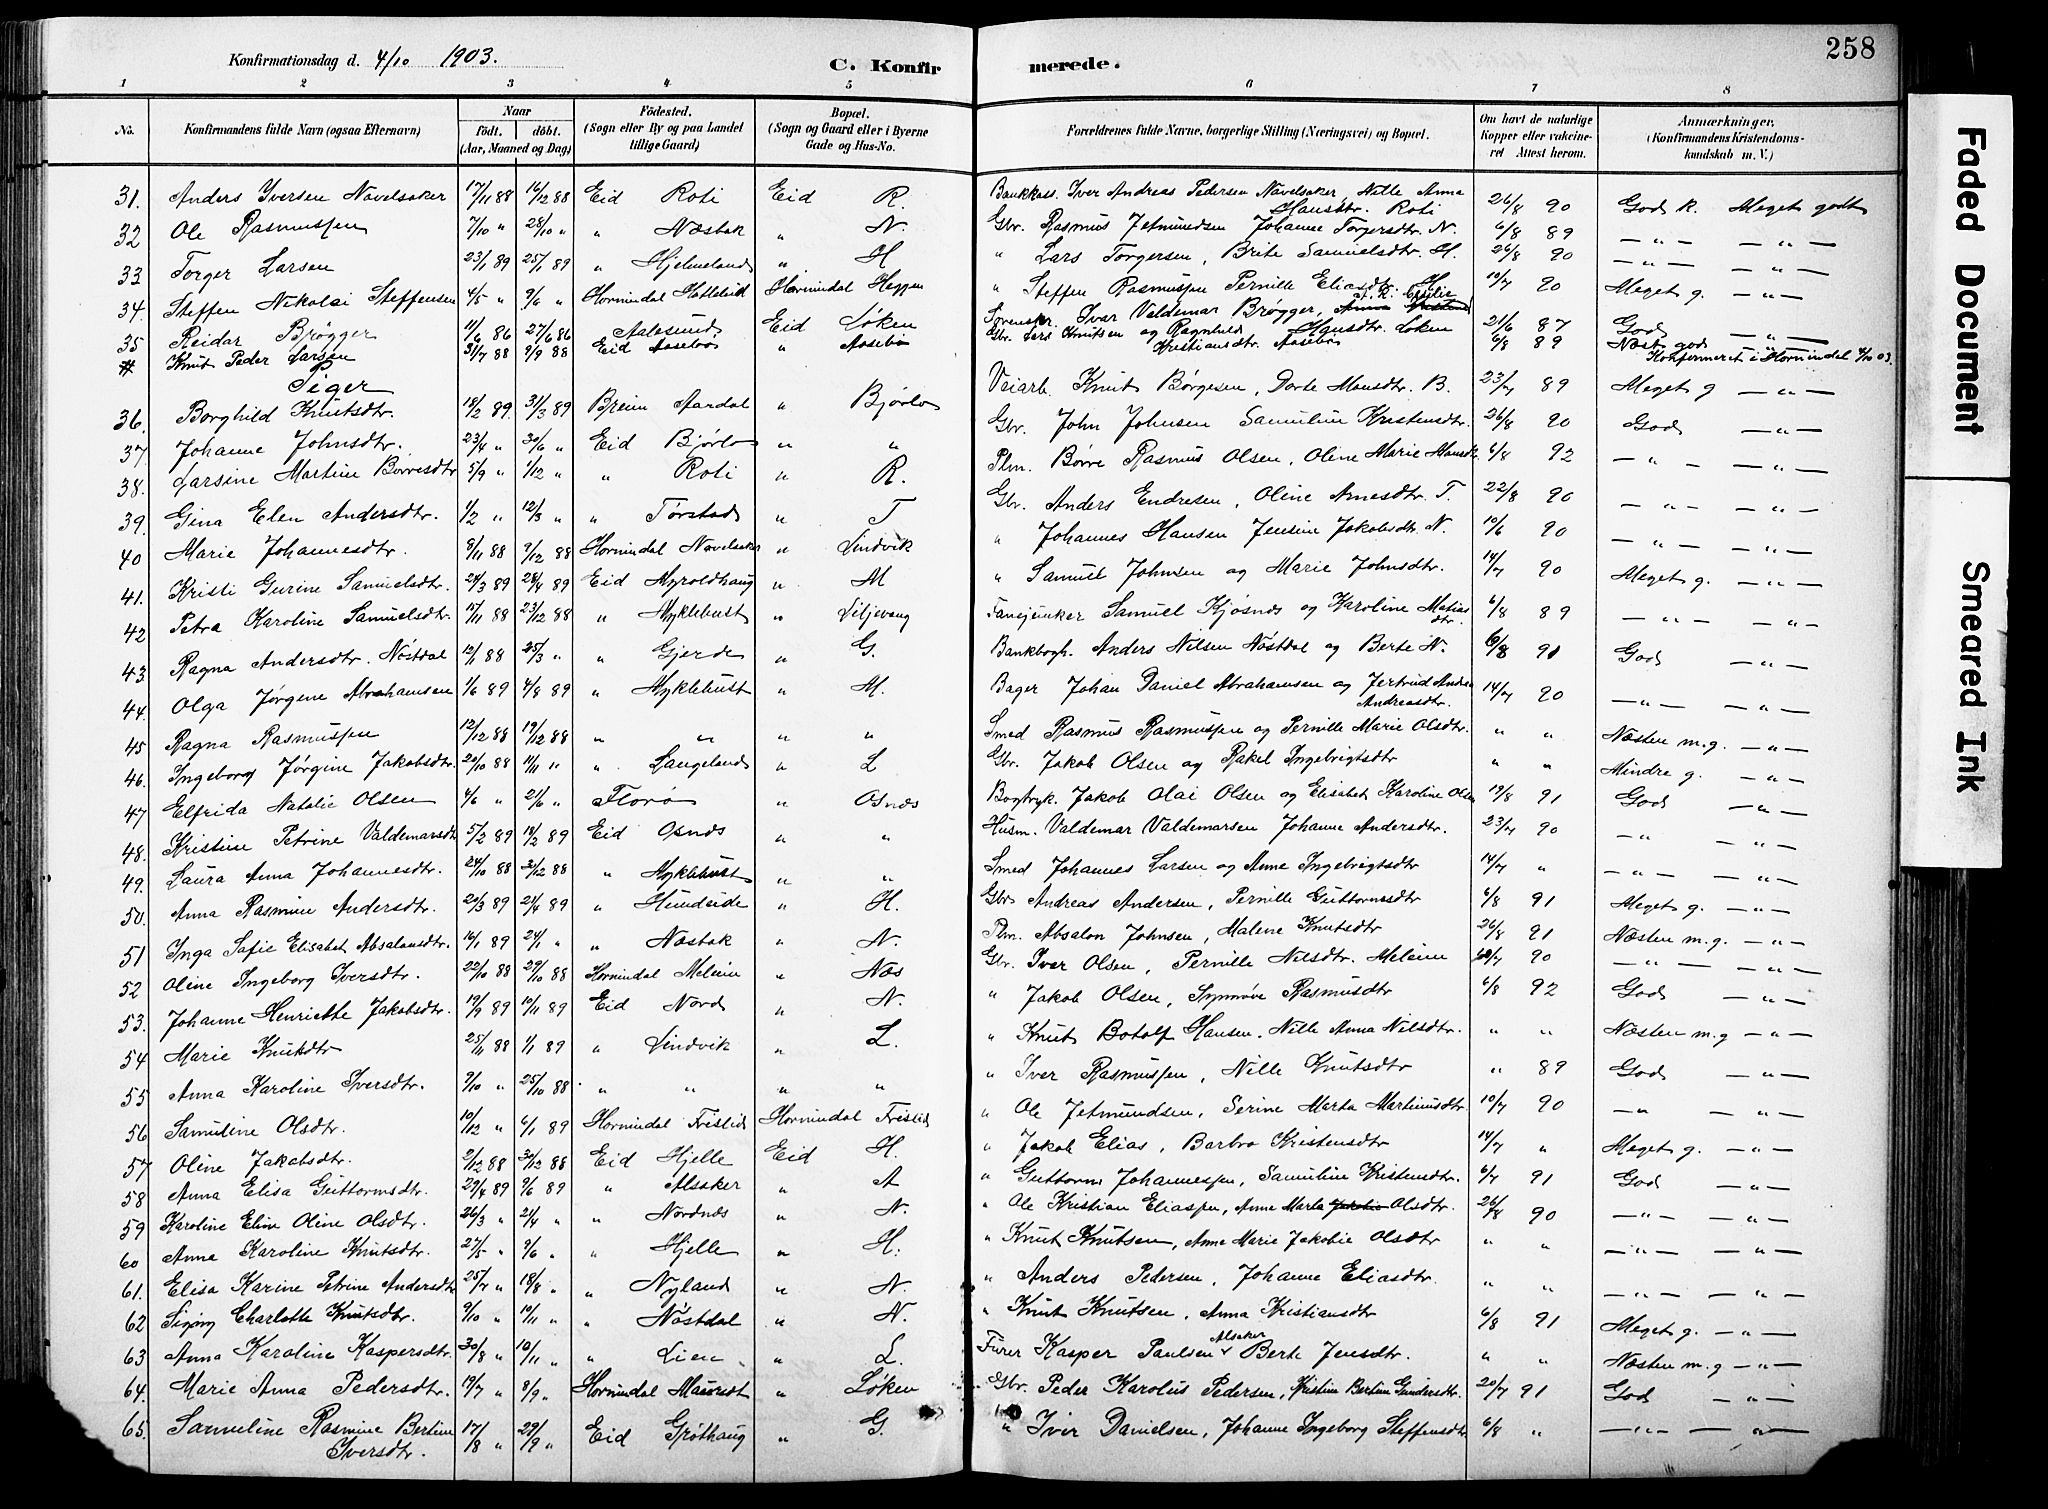 Konfirmationsdag d. 4/10 1903.
C. Konfirmerede.
258
1 2 3 4 5 6 7 8
No. Konfirmandens fulde Navn (ogsaa Efternavn) Naar födt. döbt. (Aar, Maaned og Dag) Födested. (Sogn eller By og paa Landet tillige Gaard) Bopæl. (Sogn og Gaard eller i Byerne Gade og Hus-No. Forældrenes fulde Navne, borgerlige Stilling (Næringsvei) og Bopæl. Om havt de naturlige Kopper eller vakcineret Attest herom. Anmærkninger, (Konfirmandens Kristendomskundskab m. V.)
31. Anders Iversen Navelsaker 17/11 88 16/12 88 Eid Roti Eid R. Bankkass. Iver Andreas Pedersen Navelsaker, Nille Anna Hansdtr. Roti 26/8 90 God k. Meget godt
32 Ole Rasmussen 7/10 " 28/10 " " Næstak " N. Gbr. Rasmus Jetmundsen Johanne Torgersdtr. N. 6/8 89 — " — — " —
33 Torger Larsen 23/1 89 25/1 89 " Hjelmeland " H " Lars Torgersen, Brite Samuelsdtr. H. 26/8 90 — " — — " —
34. Steffen Nikolai Steffensen 4/5 " 9/6 " Hornindal Katleid Hornindal Heggen " Steffen Rasmussen Pernille Eliasdtr. H 10/7 90 Meget g. — " —
35 Reidar Brøgger 11/6 86 27/6 86 Aalesund Eid Løken Sorenskr. Ivar Valdemar Brøgger, Hansdtr. Løken 21/6 87 God — " —
# Knut Peder Larsen 31/7 88 9/9 88 Eid Aasebø " Aasebø Gbr. Lars Knutsen og Ragnhild Kristiansdtr. Aasebø 6/8 89 Næst god Konfirmeret i Hornindal 03.
Piger
36. Borghild Knutsdtr. 18/2 89. 31/3 89 Breim Aardal " Bjørlo Veiarb. Knut Børgesen, Dorte Monsdtr. B. 23/7 89 Meget g — " —
37 Johanne Johnsdtr. 23/4 " 30/6 " Eid Bjørlo " " Gbr. John Johnsen Samuline Kristensdtr. 26/8 90 God — " —
38. Larsine Martine Børresdtr 5/9 " 1/12 " " Roti " R. Plm. Børre Rasmus Olsen, Oline Marie Monsdtr. 6/8 92 — " — — " —
39. Gina Elen Andersdtr. 1/2 " 12/3 " " Tørstad " T Gbr. Anders Endresen, Oline Arnesdtr. T. 22/8 90 — " — — " —
40 Marie Johannesdtr. 9/11 88 9/12 88 Hornindal Navelsaker " Lindvik " Johannes Hansen Jensine Jakobsdtr. N. 10/6 90 — " — — " —
41. Kristi Gurine Samuelsdtr. 24/3 89 28/4 89 Eid Myroldhaug " M " Samuel Johnsen og Marie Johnsdtr. 14/7 90 Meget g. — " —
42 Petra Karoline Samuelsdtr. 15/11 88 23/12 88 " Myklebust " Liljevang Fanejunker Samuel Kjøsnes og Karoline Matiasdtr. 6/8 89 — " — — " —
43 Ragna Andersdtr. Nøstdal 12/1 88 25/3 " " Gjerde " G. Bankbogh. Anders Nilsen Nøstdal og Berte N. 6/8 91 God — " —
44. Olga Jørgene Abrahamsen 1/6 89 4/8 89 " Myklebust " M. Bager Johan Daniel Abrahamsen og Jertrud Andrea Andreasdtr. 14/7 90 — " — — " —
45 Ragna Rasmussen 12/12 88 19/12 88 " " " " Smed Rasmus Rasmussen og Pernille Marie Olsdtr. " " Næsten m. g. — " —
46. Ingeborg Jørgine Jakobsdtr. 20/10 88 11/11 " " Langeland " L Gbr. Jakob Olsen og Rakel Ingebrigtsdtr " " Mindre g. — " —
47 Elfrida Natalie Olsen 4/6 " 21/6 " Florø " Osnes Bogtryk. Jakob Olai Olsen og Elisabet Karoline Olsen 19/8 91 God — " —
48. Kristine Petrine Valdemarsdtr 5/2 89 10/2 89 Eid Osnes " " Husm. Valdemar Valdemarsen Johanne Andersdtr. 23/7 90 — " — " —
49. Laura Anna Johannesdtr. 24/10 88 30/12 88 " Myklebust " " Smed Johannes Larsen og Anne Ingebrigtsdtr 14/7 " — " — — " —
50. Anna Rasmine Andersdtr. 21/3 89 21/4 89 " Hundeide " H. Gbr Andreas Andersen, Pernille Guttormsdtr 6/8 91 Meget g. — " —
51 Inga Sofie Elisabet Absalonsdtr. 16/1 89 24/1 " " Næstak " N. Plm. Absalon Johnsen, Malene Knutsdtr 26/8 91 Næsten m. g. — " —
52 Oline Ingeborg Iversdtr. 22/10 88 29/10 88 Hornindal Meleim " Næs Gbr. Iver Olsen, Pernille Nilsdtr. Meleim 90 — " — — " —
53. Johanne Henriette Jakobsdtr. 19/9 89 10/11 89 Eid Nord " N. " Jakob Olsen, Synnøve Rasmusdtr 6/8 92 God — " —
54 Marie Knutsdtr 25/11 88 1/1 89 " Lindvik " L. " Knut Botolf Hansen. Nille Anna Nilsdtr. " " Næsten m. g — " —
55 Anna Karoline Iversdtr. 9/10 " 25/10 88 " " " " " Iver Rasmussen, Nille Knutsdtr " 89 God — " —
56 Samuline Olsdtr. 10/12 " 6/1 89 Hornindal Fristid Hornindal Fristid " Ole Jetmundsen, Serine Marta Martinusdtr 10/7 90 — " — " —
57 Oline Jakobsdtr. 2/12 88 30/12 88 Eid Hjelle Eid H. " Jakob Elias, Barbro Kristensdtr 14/7 " Meget g. — " —
58 Anna Elisa Guttormsdtr. 29/4 89 9/6 89 " Alsaker " A " Guttorm Johannessen, Samuline Kristensdtr. 6/7 91 God — " —
59 Karoline Eline Oline Olsdtr. 26/3 " 21/4 " " Nordnes " N. " Ole Kristian Eliassen, Anne Marta Olsdtr. 26/8 90 — " — — " —
60 Anna Karoline Knutsdtr. 27/5 " 9/6 " " Hjelle " H. " Knut Knutsen, Anne Marie Jakobie Olsdtr " " — " — — " —
61. Elisa Karine Petrine Andersdtr 25/7 " 18/8 " " Nyland " N. " Anders Pedersen, Johanne Eliasdtr. " " — " — — " —
62 Signy Charlotte Knutsdtr. 9/10 " 10/11 " " Nøstdal " N. " Knut Knutsen, Anna Kristiansdtr 6/8 91 Meget g. — " —
63 Anna Karoline Kaspersdtr. 30/8 " 10/11 " " Lien " L. Furer Kasper Paulsen Alsaker Berte Jensdtr. " " Næsten m. g — " —
64 Marie Anna Pedersdtr. 19/7 " 8/9 " Hornindal Maurset " Løken Gbr. Peder Karolus Pedersen, Kristine Bertine Gundersdtr. 20/7 91 God — " —
65. Samuline Rasmine Bertine Iversdtr. 17/8 " 29/9 " Eid Grøthaug " G. " Iver Danielsen, Johanne Ingeborg Steffensdtr 6/8 " — " — — " —
Faded Document
Smeared Ink